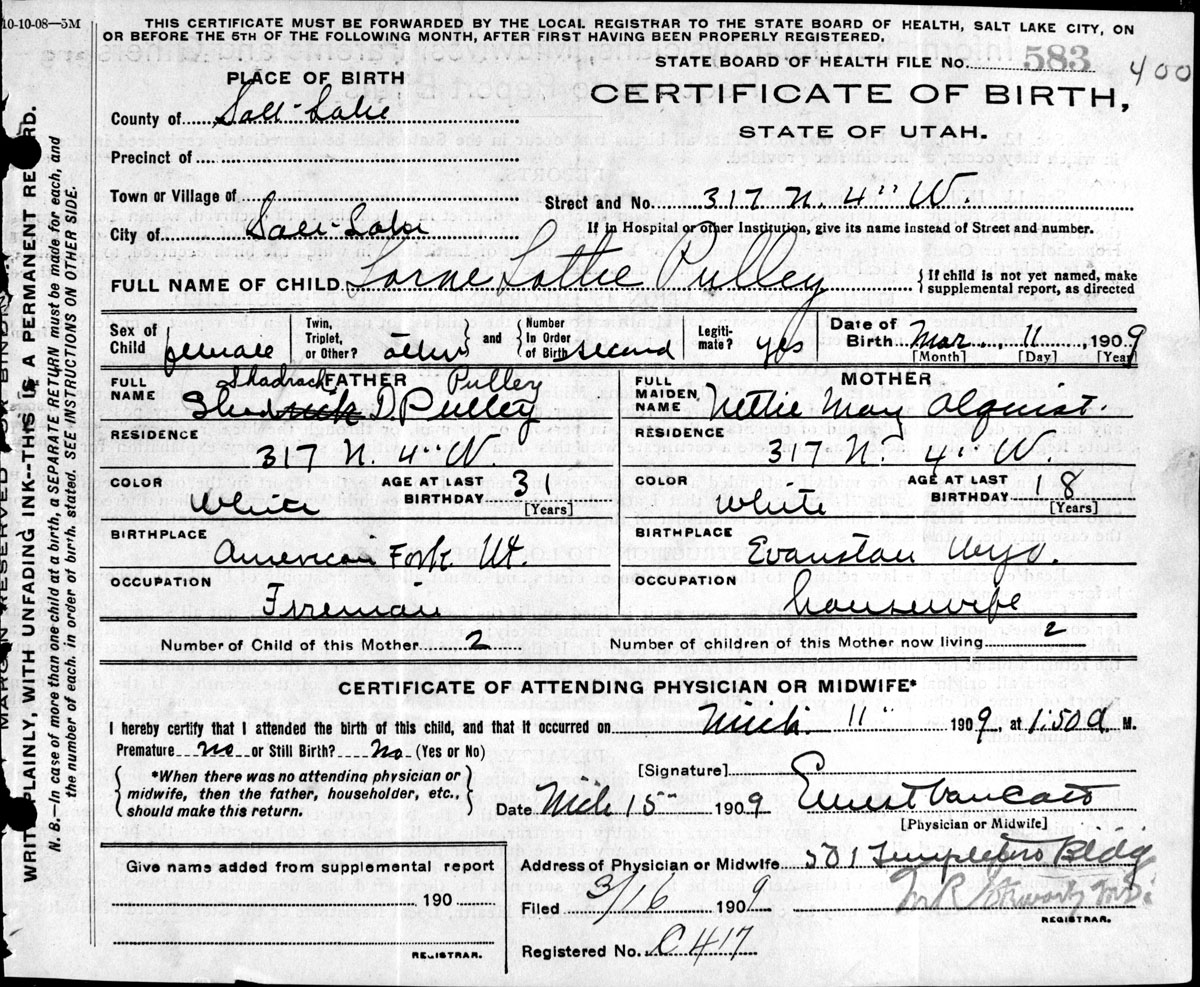 10-10-08—5M
THIS CERTIFICATE MUST BE FORWARDED BY THE LOCAL REGISTRAR TO THE STATE BOARD OF HEALTH, SALT LAKE CITY, ON
OR BEFORE THE 5TH OF THE FOLLOWING MONTH, AFTER FIRST HAVING BEEN PROPERLY REGISTERED.
STATE BOARD OF HEALTH FILE No. 583 400
PLACE OF BIRTH
CERTIFICATE OF BIRTH,
STATE OF UTAH.
County of Salt-Lake
Precinct of
Town or Village of
Street and No. 317 N. 4" W.
City of Salt-Lake
If in Hospital or other Institution, give its name instead of Street and number.
FULL NAME OF CHILD Lorne Lottie Pulley
{If child is not yet named, make
supplemental report, as directed
Sex of Child female
Twin, Triplet, or Other?
and {Number In Order of Birth second
Legiti- mate? yes
Date of Birth Mar 11, 1909
[Month] [Day] [Year]
FULL NAME
FATHER
Shadrach Pulley
Shadrick D Pulley
FULL MAIDEN NAME
MOTHER
Nettie May Olquist.
RESIDENCE
317 N. 4" W.
RESIDENCE
317 N 4" W
COLOR White
AGE AT LAST BIRTHDAY 31
[Years]
COLOR White
AGE AT LAST BIRTHDAY 18
[Years]
BIRTHPLACE
American Fork Ut.
BIRTHPLACE
Evanston Wyo.
OCCUPATION
Fireman
OCCUPATION
housewife
Number of Child of this Mother 2
Number of children of this Mother now living 2
CERTIFICATE OF ATTENDING PHYSICIAN OR MIDWIFE*
I hereby certify that I attended the birth of this child, and that it occurred on Mich. 11" 1909, at 1:50 a M.
Premature no or Still Birth? No (Yes or No)
{*When there was no attending physician or
midwife, then the father, householder, etc.,
should make this return.}
[Signature]
Date Mch 15" 1909
Ernest
[Physician or Midwife]
Give name added from supplemental report
190
REGISTRAR.
Address of Physician or Midwife 501 Templeton Bldg
Filed 3/16 1909
M R Stewart M.D.
REGISTRAR.
Registered No. C417
MARGIN RESERVED FOR BINDING
WRITE PLAINLY, WITH UNFADING INK--THIS IS A PERMANENT RECORD.
N. B.—In case of more than one child at a birth, a SEPARATE RETURN must be made for each, and
the number of each, in order of birth, stated. SEE INSTRUCTIONS ON OTHER SIDE.